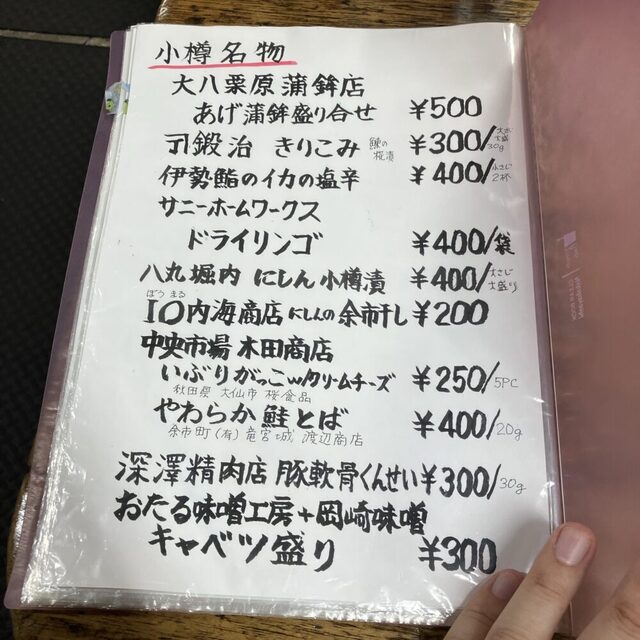 小樽名物
大八栗原蒲鉾店
あげ蒲鉾盛り合せ ¥500
鍛治 きりこみ 鰊の桜漬 ¥300/30g
伊勢鮨のイカの塩辛 ¥400/小さじ2杯
サニーホームワークス
ドライリンゴ ¥400/袋
八丸堀内 にしん小樽漬 ¥400/大さじ大盛り
ぼう まる
IO内海商店 にしんの余市干し ¥200
中央市場 木田商店
いぶりがっこw/クリームチーズ ¥250/5PC
秋田県 大仙市 桜食品
やわらか鮭とば ¥400/20g
余市町(有)竜宮城 渡辺商店
深澤精肉店 豚軟骨くんせい ¥300/30g
おたる味噌工房+岡崎味噌
キャベツ盛り ¥300